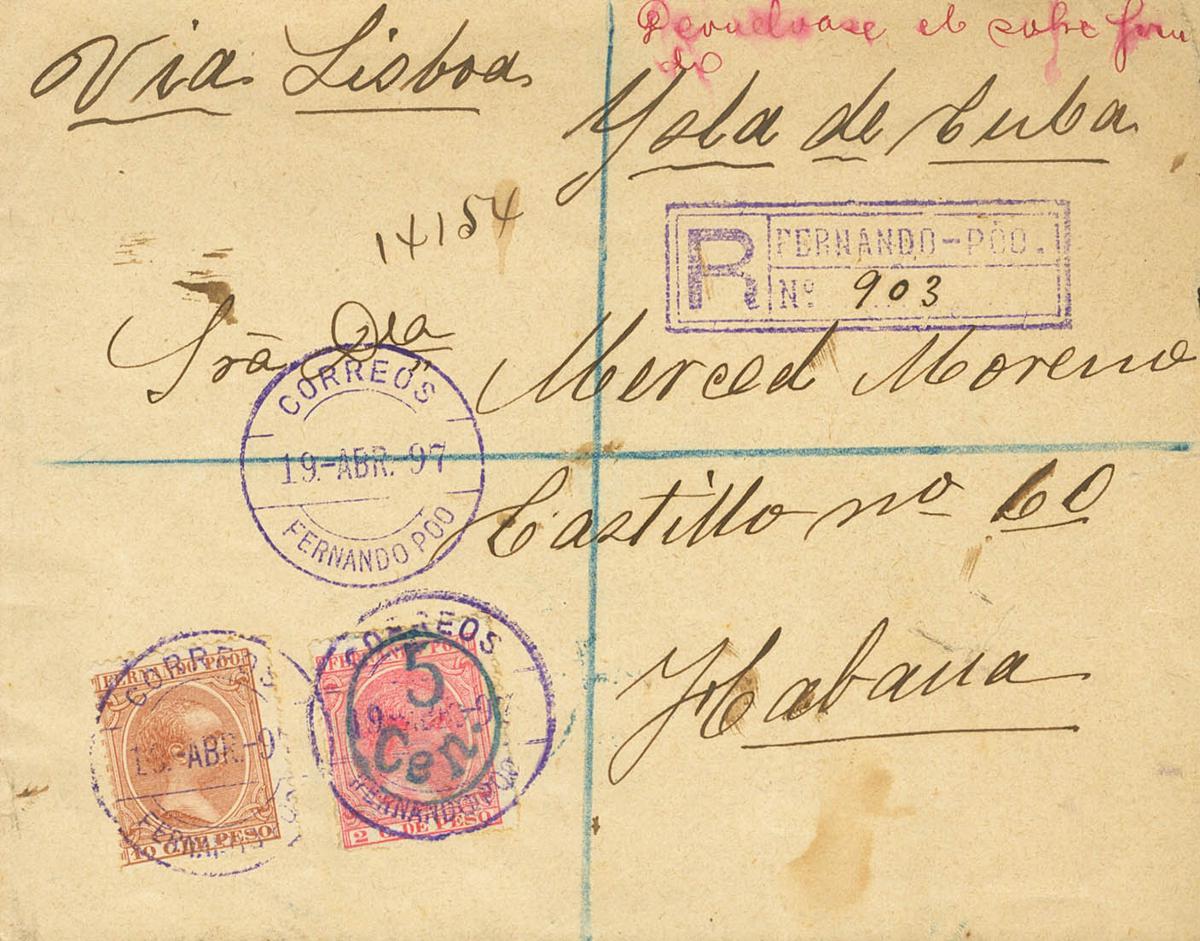 Devuelvase el sobre firma
do
Via Lisboa
Ysla de Cuba
14154
R FERNANDO-PÓO.
Nº 903
Srã Dña Merced Moreno
CORREOS
19.-ABR.-97
FERNANDO POO
Castillo nº 60
Habana
CORREOS
19.-ABR.-97
FERNANDO POO
FERNANDO POO
10 C. DE PESO
CORREOS
19.-ABR.-97
FERNANDO POO
FERNANDO POO
5
Cen.
2 C. DE PESO